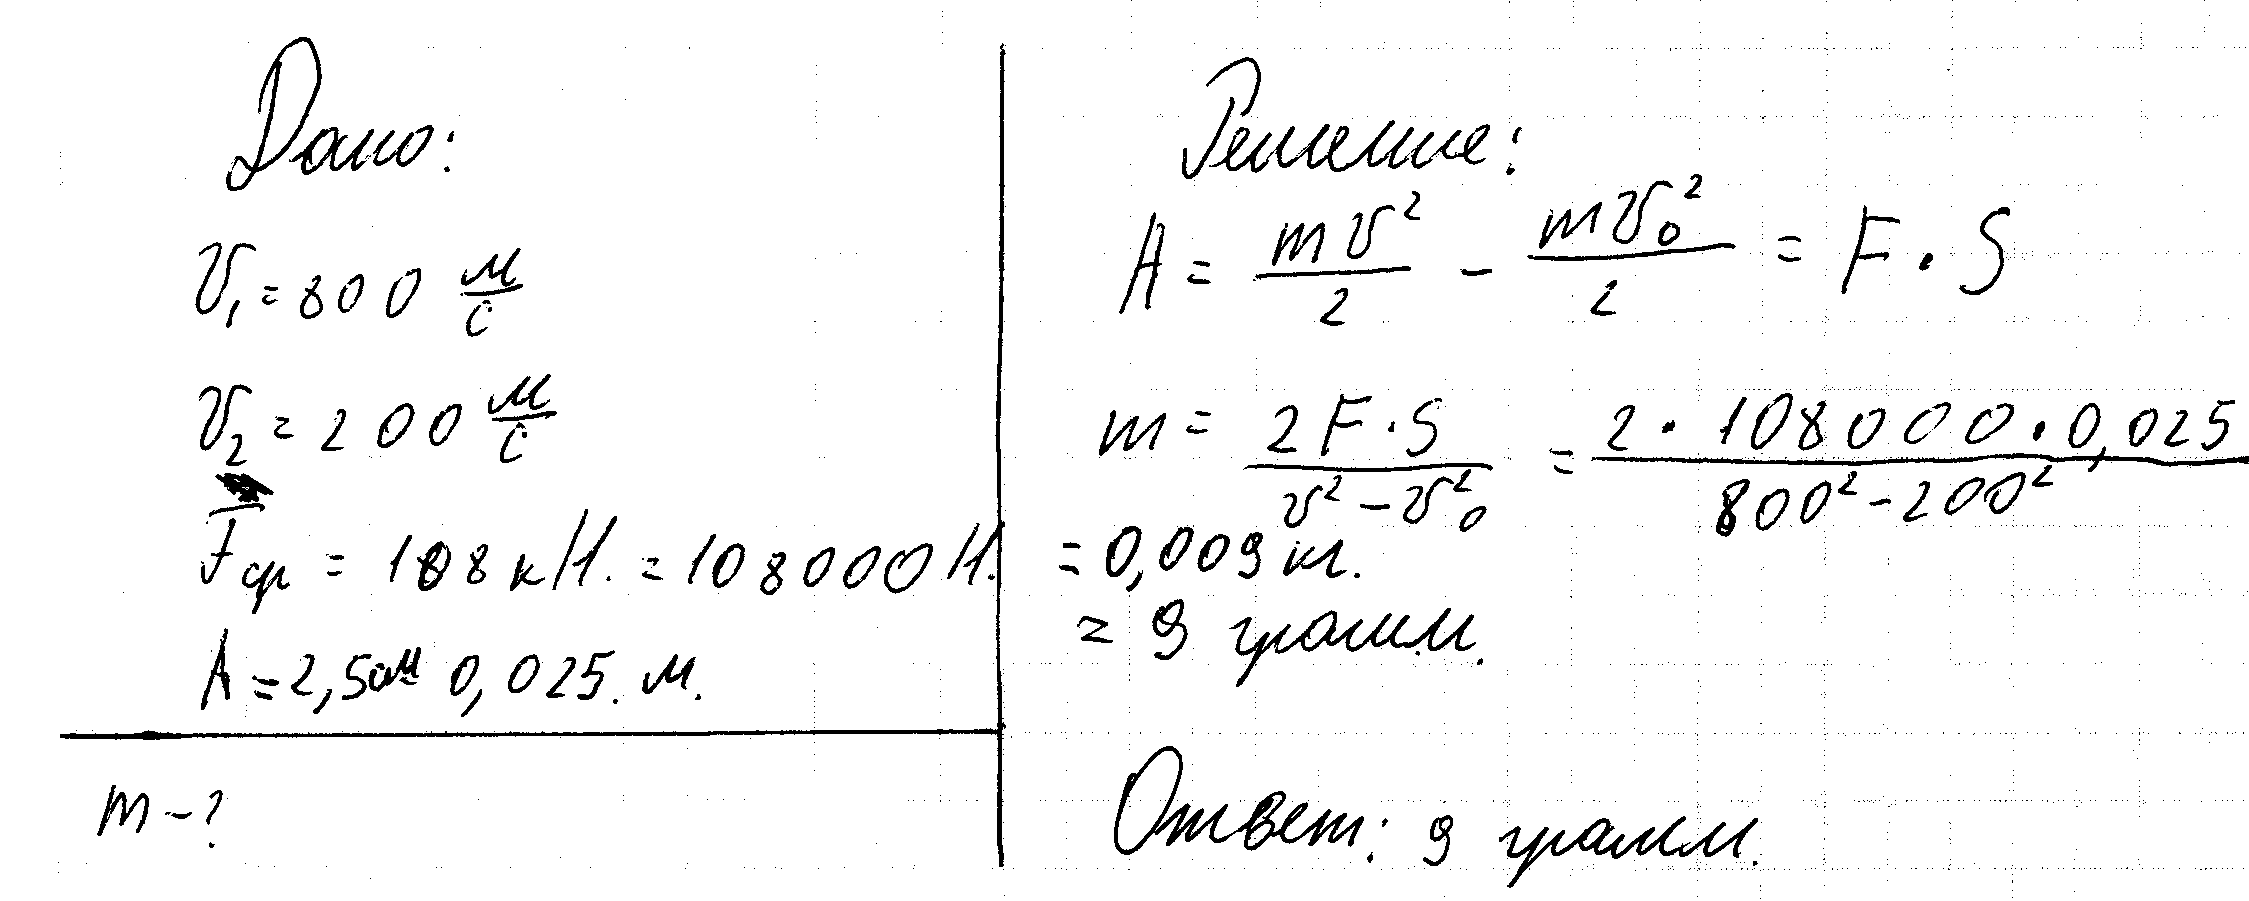 Дано:
v₁ = 800 м/с
v₂ = 200 м/с
Fср = 108 кН. = 108000 Н.
A = 2,5см = 0,025. м.
m - ?
Решение:
A = mv²/2 - mv₀²/2 = F · S
m = 2F·S/(v² - v₀²) = 2 · 108000 · 0,025/(800² - 200²)
= 0,009 кг.
= 9 грамм.
Ответ: 9 грамм.